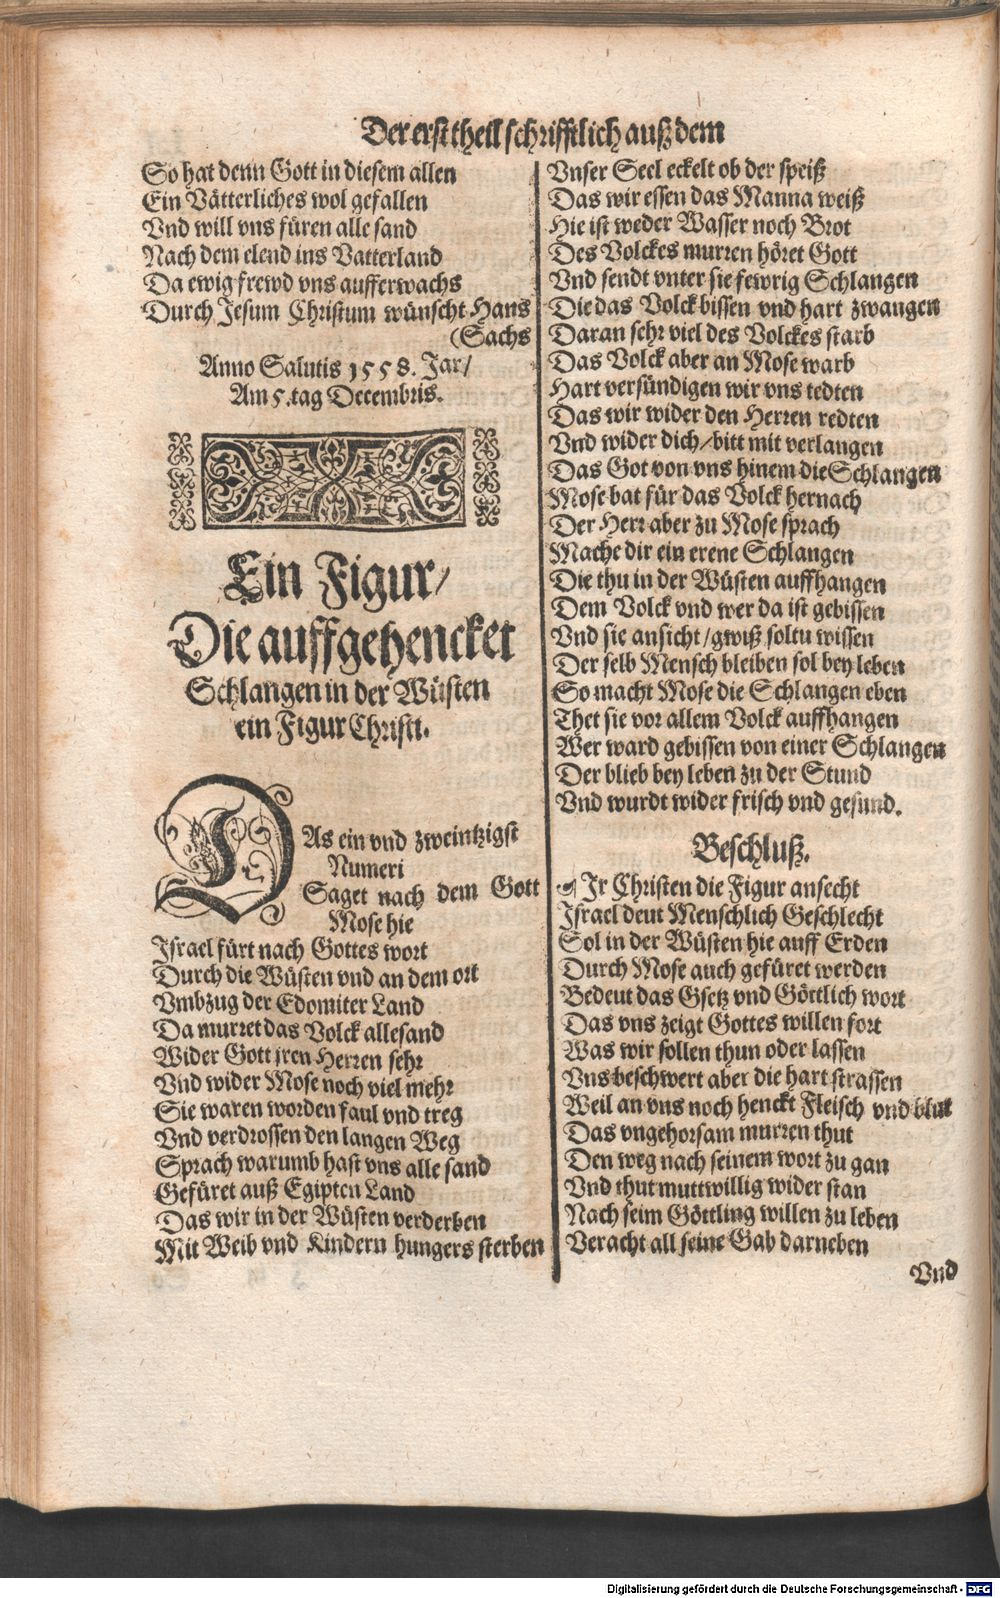 Der erst theil schrifftlich auß dem
So hat denn Gott in diesem allen
Ein Vätterliches wol gefallen
Vnd will vns füren alle sand
Nach dem elend ins Vatterland
Da ewig frewd vns aufferwachs
Durch Jesum Christum wünscht Hans
(Sachs
Anno Salutis 1558. Jar/
Am 5. tag Decembris.
Ein Figur/
Die auffgehencket
Schlangen in der Wüsten
ein Figur Christi.
DAs ein vnd zweintzigst
Numeri
Saget nach dem Gott
Mose hie
Israel fürt nach Gottes wort
Durch die Wüsten vnd an dem ort
Vmbzug der Edomiter Land
Da murret das Volck allesand
Wider Gott jren Herren sehr
Vnd wider Mose noch viel mehr
Sie waren worden faul vnd treg
Vnd verdrossen den langen Weg
Sprach warumb hast vns alle sand
Gefüret auß Egipten Land
Das wir in der Wüsten verderben
Mit Weib vnd Kindern hungers sterben
Vnser Seel eckelt ob der speiß
Das wir essen das Manna weiß
Hie ist weder Wasser noch Brot
Des Volckes murren höret Gott
Vnd sendt vnter sie fewrig Schlangen
Die das Volck bissen vnd hart zwangen
Daran sehr viel des Volckes starb
Das Volck aber an Mose warb
Hart versündigen wir vns tedten
Das wir wider den Herren redten
Vnd wider dich/bitt mit verlangen
Das Got von vns hinem die Schlangen
Mose bat für das Volck hernach
Der Herr aber zu Mose sprach
Mache dir ein erene Schlangen
Die thu in der Wüsten auffhangen
Dem Volck vnd wer da ist gebissen
Vnd sie ansicht/gwiß soltu wissen
Der selb Mensch bleiben sol bey leben
So macht Mose die Schlangen eben
Thet sie vor allem Volck auffhangen
Wer ward gebissen von einer Schlangen
Der blieb bey leben zu der Stund
Vnd wurdt wider frisch vnd gesund.
Beschluß.
Ir Christen die Figur ansecht
Israel deut Menschlich Geschlecht
Sol in der Wüsten hie auff Erden
Durch Mose auch gefüret werden
Bedeut das Gsetz vnd Göttlich wort
Das vns zeigt Gottes willen fort
Was wir sollen thun oder lassen
Vns beschwert aber die hart strassen
Weil an vns noch henckt Fleisch vnd blut
Das vngehorsam murren thut
Den weg nach seinem wort zu gan
Vnd thut muttwillig wider stan
Nach seim Göttling willen zu leben
Veracht all seine Gab darneben
Vnd
Digitalisierung gefördert durch die Deutsche Forschungsgemeinschaft - DFG